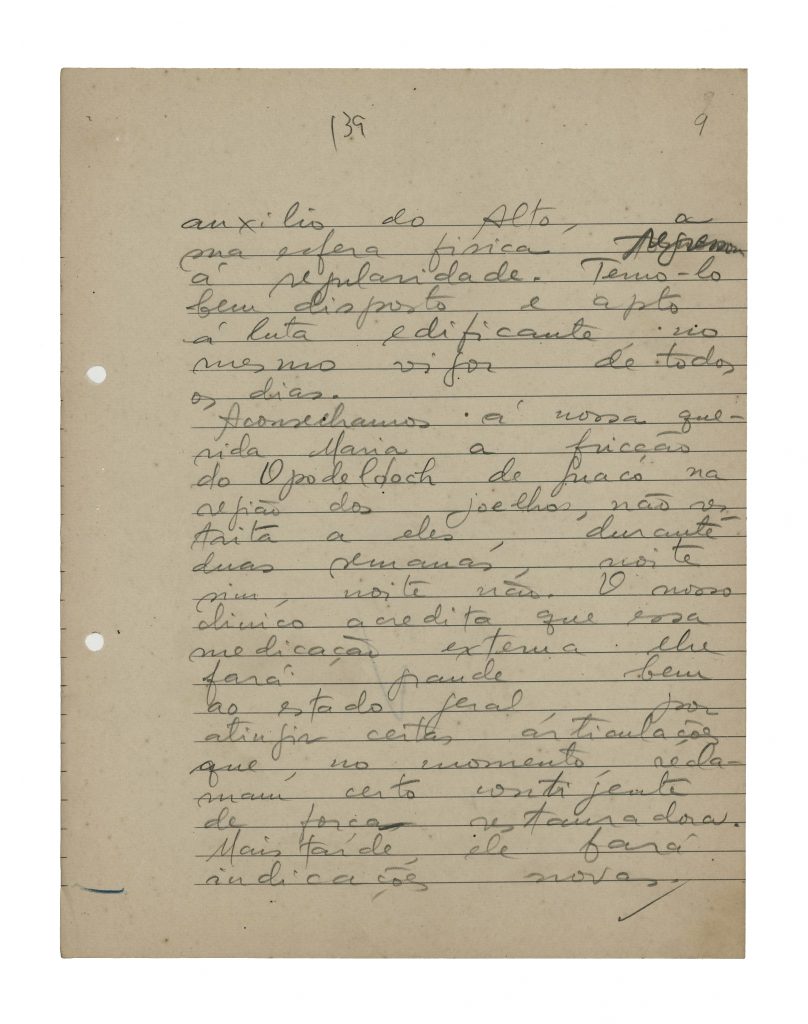 139
9
auxilio do Alto, a
sua esfera fisica regressou
á regularidade. Temo-lo
bem disposto e apto
á luta edificante no
mesmo vigor de todos
os dias.
Aconselhamos á nossa que-
rida Maria a fricção
do Opodeldoch de Guaco na
região dos joelhos, não res-
trita a eles, durante
duas semanas, noite
sim, noite não. O nosso
clinico acredita que essa
medicação externa lhe
fará grande bem
ao estado geral, por
atingir certas articulações
que, no momento, recla-
mam certo contigente
de força restauradora.
Mais tarde, ele fará
indicações novas.